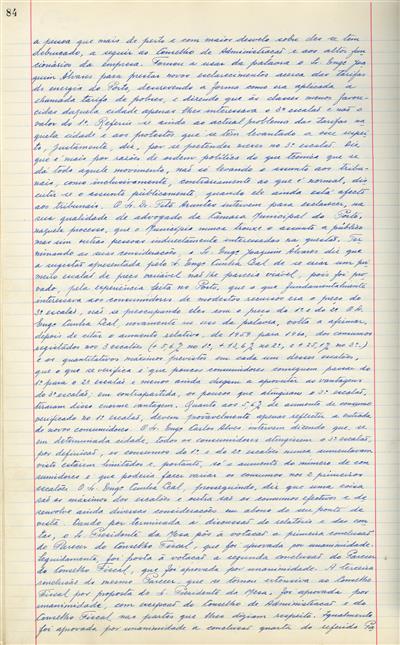 84
a pessoa que mais de perto e com maior desvelo sobre elas se tem
debruçado, a seguir ao Conselho de Administração e aos altos fun-
cionários da Empresa. Tornou a usar da palavra o Sr. Engº Joa-
quim Alvares para prestar novos esclarecimentos acerca das tarifas
de energia do Porto, descrevendo a forma como era aplicada a
chamada tarifa de pobres, e dizendo que às classes menos favore-
cidas daquela cidade apenas lhes interessava o 3º escalão e não o
valor do 1º. Referiu-se ainda ao actual problema das tarifas na-
quela cidade e aos protestos que se têm levantado a esse respei-
to, justamente, diz, por se pretender mexer no 3º escalão. Diz
que é mais por razões de ordem política do que técnica que se
dá todo aquele movimento, não só levando o assunto aos tribu-
nais, como inclusivamente, contrariamente ao que é normal, dis-
cutir-se o assunto públicamente, quando ele ainda está afecto
aos tribunais. O Sr. Dr. Tito Arantes intervem para esclarecer, na
sua qualidade de advogado da Câmara Municipal do Porto,
naquele processo, que o Município nunca trouxe o assunto a público
mas sim outras pessoas indirectamente interessadas na questão. Ter-
minando as suas considerações o Sr. Engº Joaquim Alvares diz que
a sugestão apresentada pelo Sr. Engº Cunha Leal de se criar um pri-
meiro escalão de preço variável não lhe parecia viável, pois foi pro-
vado, pela experiência feita no Porto, que o que fundamentalmente
interessava aos consumidores de modestos recursos era o preço do
3º escalão, não se preocupando eles com o preço do 1º e do 2º. O Sr.
Engº Cunha Leal, novamente no uso da palavra, volta a afirmar,
depois de citar o aumento relativo, de 1959 para 1960, dos consumos
registados nos 3 escalões (+ 5,6% no 1º, + 13,6% no 2º, e + 25,1% no 3º)
e os quantitativos máximos previstos em cada um desses escalões,
que o que se verifica é que poucos consumidores conseguem passar do
1º para o 2º escalão e menos ainda chegam a aproveitar as vantagens
do 3º escalão; em contrapartida, os poucos que atingiram o 3º escalão,
tiraram disso enorme vantagem. Quanto aos 5,6% de aumento de consumo
verificado no 1º escalão, devem provàvelmente apenas reflectir a entrada
de novos consumidores. O Sr. Engº Carlos Alves intervem dizendo que, se
em determinada cidade, todos os consumidores atingirem o 3º escalão,
por definição, os consumos do 1º e do 2º escalões nunca aumentavam
visto estarem limitados e, portanto, só o aumento do número de con-
sumidores é que poderia fazer variar os consumos nos 2 primeiros
escalões. O Sr. Engº Cunha Leal, prosseguindo, diz que uma coisa
são os máximos dos escalões e outra são os consumos efectivos e de-
senvolve ainda diversas considerações em abono do seu ponto de
vista. Dando por terminada a discussão do relatório e das con-
tas, o Sr. Presidente da Mesa pôs à votação a primeira conclusão
do Parecer do Conselho Fiscal, que foi aprovada por unanimidade.
Seguidamente, foi posta à votação a segunda conclusão do Parecer
do Conselho Fiscal, que foi aprovada por unanimidade. A terceira
conclusão do mesmo Parecer, que se tornou extensiva ao Conselho
Fiscal por proposta do Sr. Presidente da Mesa, foi aprovada por
unanimidade, com excepção do Conselho de Administração e do
Conselho Fiscal nas partes que lhes diziam respeito. Igualmente
foi aprovada por unanimidade a conclusão quarta do referido Pa-